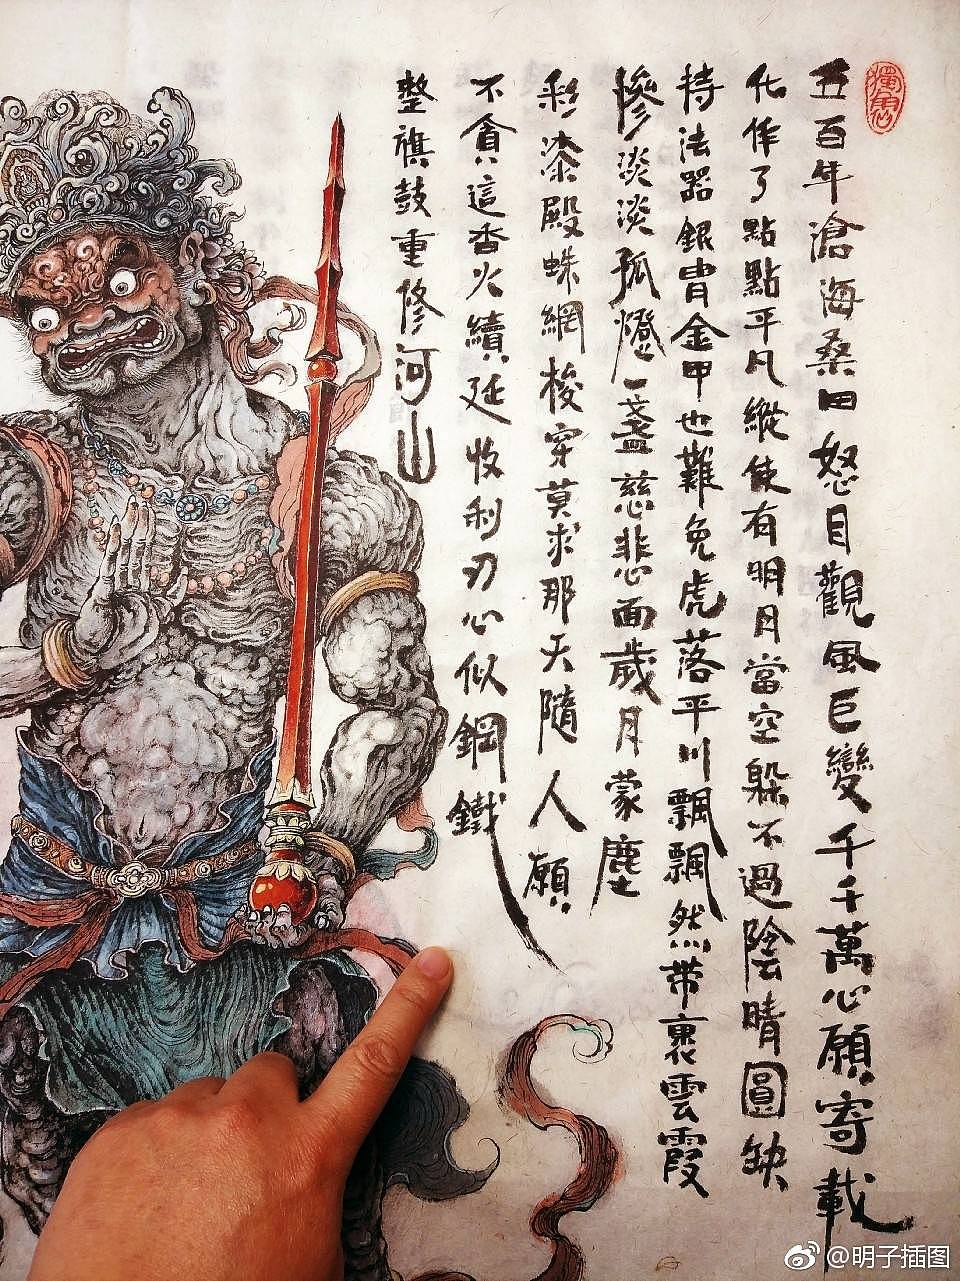 五百年滄海桑田怒目觀風巨變千千萬心願寄載
化作了點點平凡縱使有明月當空躲不過陰晴圓缺
持法器銀胄金甲也難免虎落平川飄飄然帶裹雲霞
慘淡淡孤燈一盞慈悲面歲月蒙塵
彩漆殿蛛網梭穿莫求那天隨人願
不貪這香火續延收利刃心似鋼鐵
整旗鼓重修河山
@明子插图